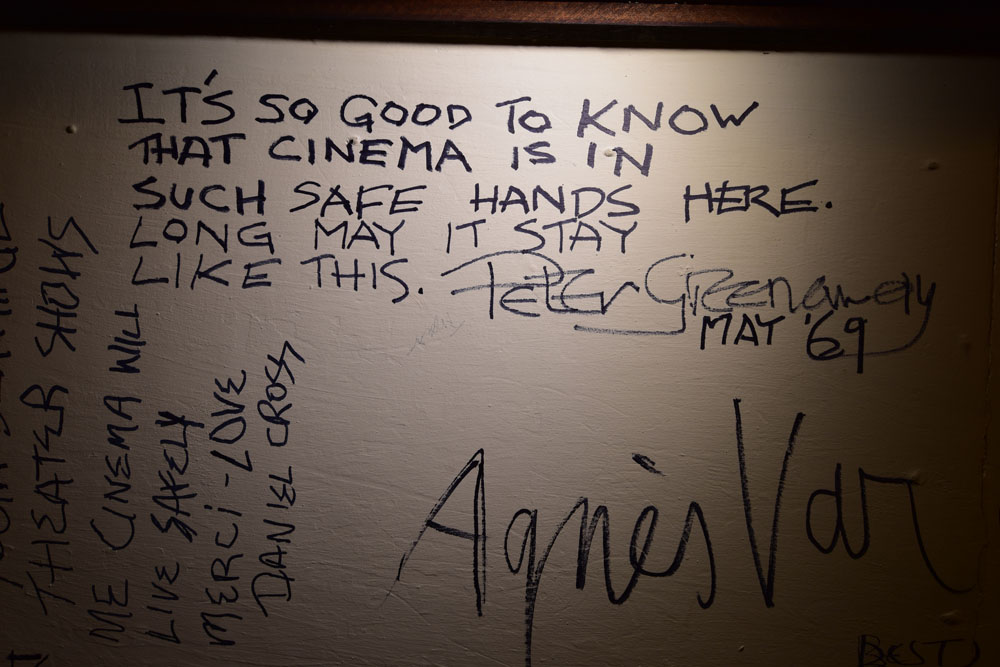 IT'S SO GOOD TO KNOW
THAT CINEMA IS IN
SUCH SAFE HANDS HERE.
LONG MAY IT STAY
LIKE THIS. Peter Greenaway
MAY '69
Agnès Var
THEATER SHOWS
ME CINEMA WILL
LIVE SAFELY
MERCI - LOVE
DANIEL CROSS
BEST